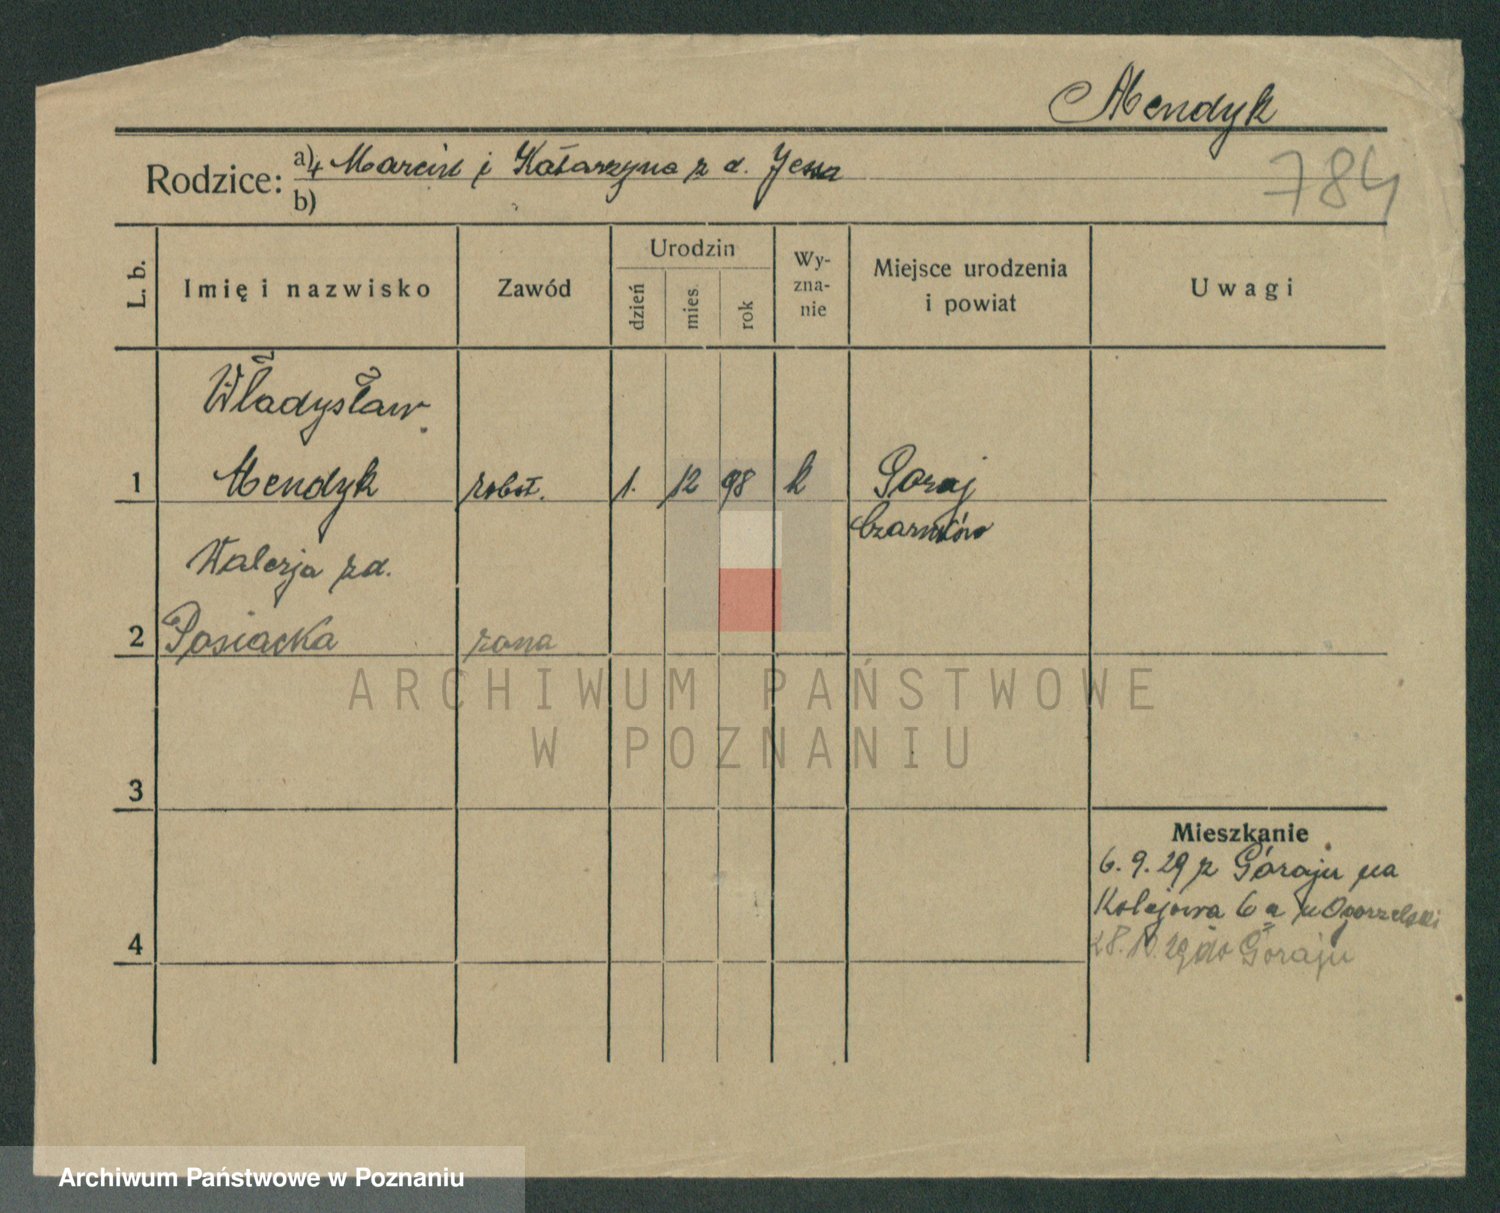 Mendyk
Rodzice: a) Marcin i Katarzyna z d. Jessa
784
b)
L. b. Imię i nazwisko Zawód Urodzin dzień mies. rok Wy-zna-nie Miejsce urodzenia i powiat Uwagi
Władysław
1 Mendyk robot. 1. 12 98 k Goraj
Czarnków
Walerja z d.
2 Posiacka żona
ARCHIWUM PAŃSTWOWE
W POZNANIU
3
Mieszkanie
6. 9. 29 z Góraju na
Kolejowa 6a u Ogorzelski
4
28. 10. 29 do Góraju
Archiwum Państwowe w Poznaniu